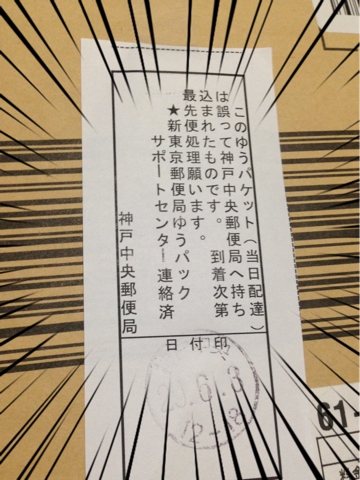 このゆうパケット(当日配達)
は誤って神戸中央郵便局へ持ち
込まれたものです。　到着次第
最先便処理願います。
★新東京郵便局ゆうパック
サポートセンター連絡済
神戸中央郵便局
日付印
12-18
61